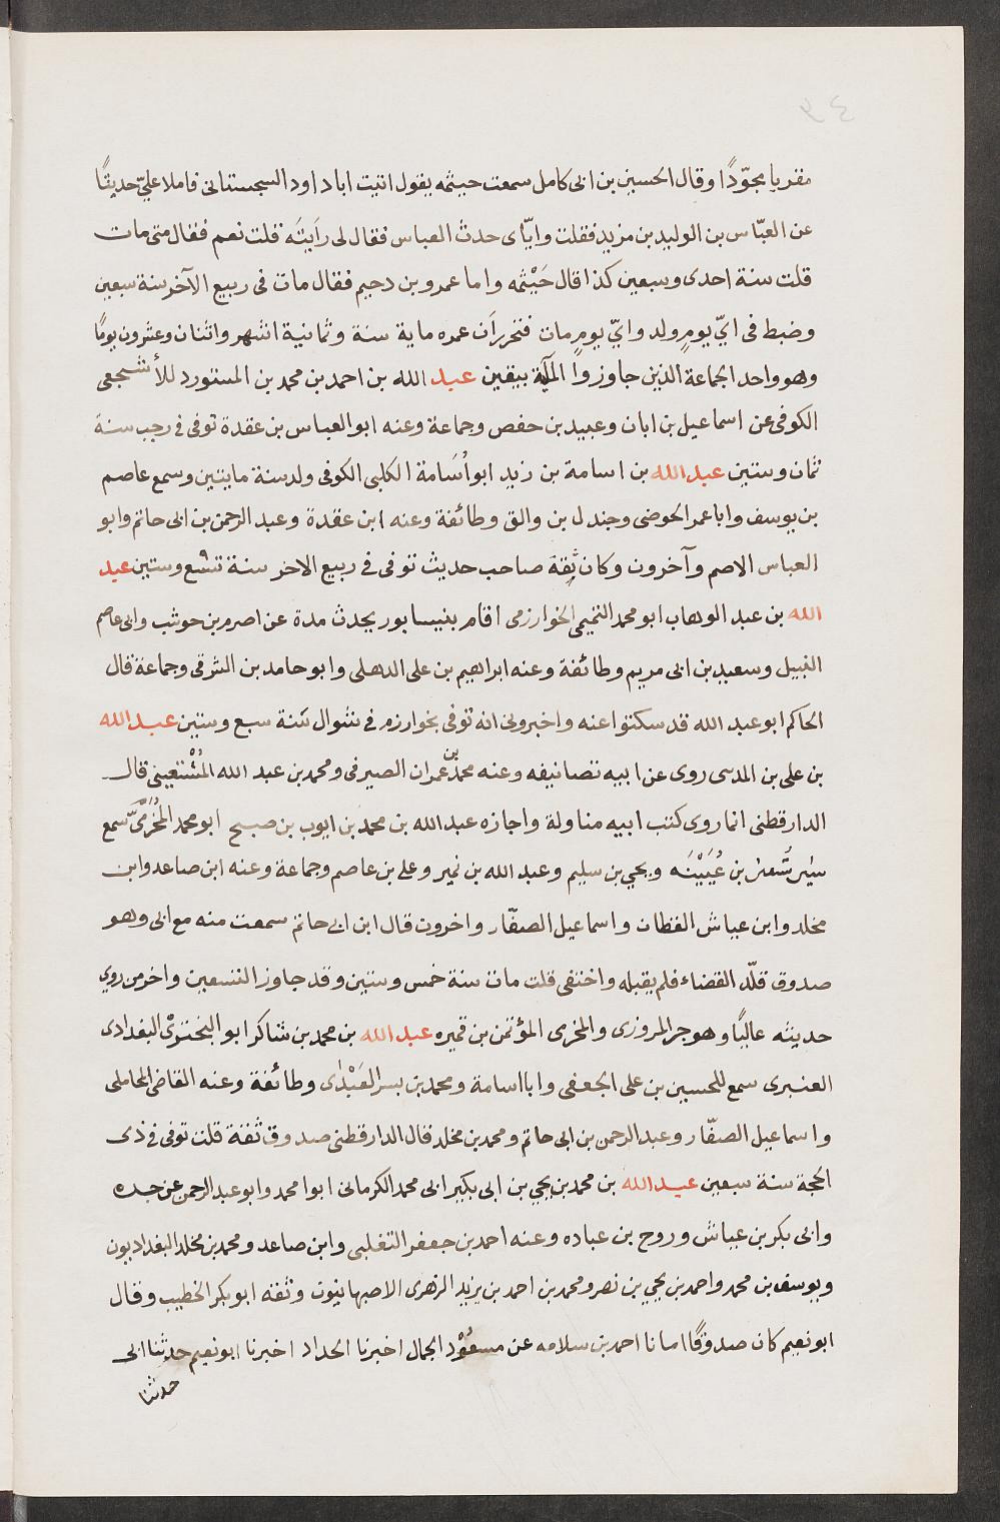 ٣٤
مقريا مجوّدًا وقال الحسين بن ابى كامل سمعت حيثمه يقول اتيت اباداود السجستانى فاملا عليّ حديثًا
عن العبّاس بن الوليد بن مزيد فقلت وايّاى حدث العباس فقال لى رَاَيتَه قلت نعم فقال متى مات
قلت سنة احدى وسبعين كذا قال حَيْثمه واما عمرو بن دحيم فقال مات فى ربيع الآخر سنة سبعين
وضبط فى ايّ يومٍ ولد وايّ يومٍ مات فتحرر اَن عمره ماية سنة وثمانية اشهر واثنان وعشرون يومًا
وهو واحد الجماعة الذين جاوزوا المآية بيقين عبد الله بن احمد بن محمد بن المستورد للأشجعى
الكوفى عن اسماعيل بن ابان وعبيد بن حفص وجماعة وعنه ابو العباس بن عقدة توفى فى رجب سنة
ثمان وستين عبد الله بن اسامة بن زيد ابو اُسَامة الكلبى الكوفى ولد سنة مايتين وسمع عاصم
بن يوسف وابا عمر الحوضى وجندل بن والق وطائفة وعنه ابن عقدة وعبد الرحمن بن ابى حاتم وابو
العباس الاصم وآخرون وكان ثِقة صاحب حديث توفى فى ربيع الاخر سنة تسع وستين عبد
الله بن عبد الوهاب ابو محمد التميمى الخوارزمى اقام بنيسابور يحدث مدة عن اصرم بن حوشب وابى عاصم
النبيل وسعيد بن ابى مريم وطائفة وعنه ابراهيم بن على الدهلى وابو حامد بن الشرقى وجماعة قال
الحاكم ابو عبد الله قد سكتوا عنه واخبرونى انه توفى بخوارزم فى شوال سَنة سبع وستين عبد الله
بن على بن المدسى روى عن ابيه تصانيفه وعنه محمد بن عمران الصيرفى ومحمد بن عبد الله المُسْتعينى قال
الدارقطنى انما روى كتب ابيه مناولة واجازه عبد الله بن محمد بن ايوب بن صبيح ابو محمد المُخَرِّمىّ سمع
بن عُيَيْنَه ويحيى بن سليم وعبد الله بن نمير وعلى بن عاصم وجماعة وعنه ابن صاعد وابن
مخلد وابن عياش القظان واسماعيل الصفّار واخرون قال ابن ابى حاتم سمعت منه مع ابى وهو
صدوق قلّد القضاء فلم يقبله واختفى قلت مات سنة خمس وستين وقد جاوز التسعين واخر من روي
حديثه عاليًا وهو جز المروزى والمخرمى المؤتمن بن قميره عبد الله بن محمد بن شاكر ابو البخترىْ البغدادى
العنبرى سمع للحسين بن على الجعفى وابا اسامة ومحمد بن بسر العَبْدى وطائفة وعنه القاضى المحاملى
واسماعيل الصفّار وعبد الرحمن بن ابى حاتم ومحمد بن مخلد قال الدارقطنى صدوق ثقة قلت توفى فى ذى
الحجة سنة سبعين عبد الله بن محمد بن يحيى بن ابى بكير ابى محمد الكرمانى ابوا محمد وابو عبد الرحمن عن جده
وابى بكر بن عياش وروح بن عباده وعنه احمد بن جعفر التغلبى وابن صاعد ومحمد بن مخلد البغداديون
ويوسف بن محمد واحمد بن يحيى بن نصر ومحمد بن احمد بن يزيد الزهرى الاصبهانيون وثقه ابو بكر الخطيب وقال
ابو نعيم كان صدوقًا انبانا احمد بن سلامه عن مسعُوْد الجمال اخبرنا الحداد اخبرنا ابو نعيم حدثنا ابى
حدثنا